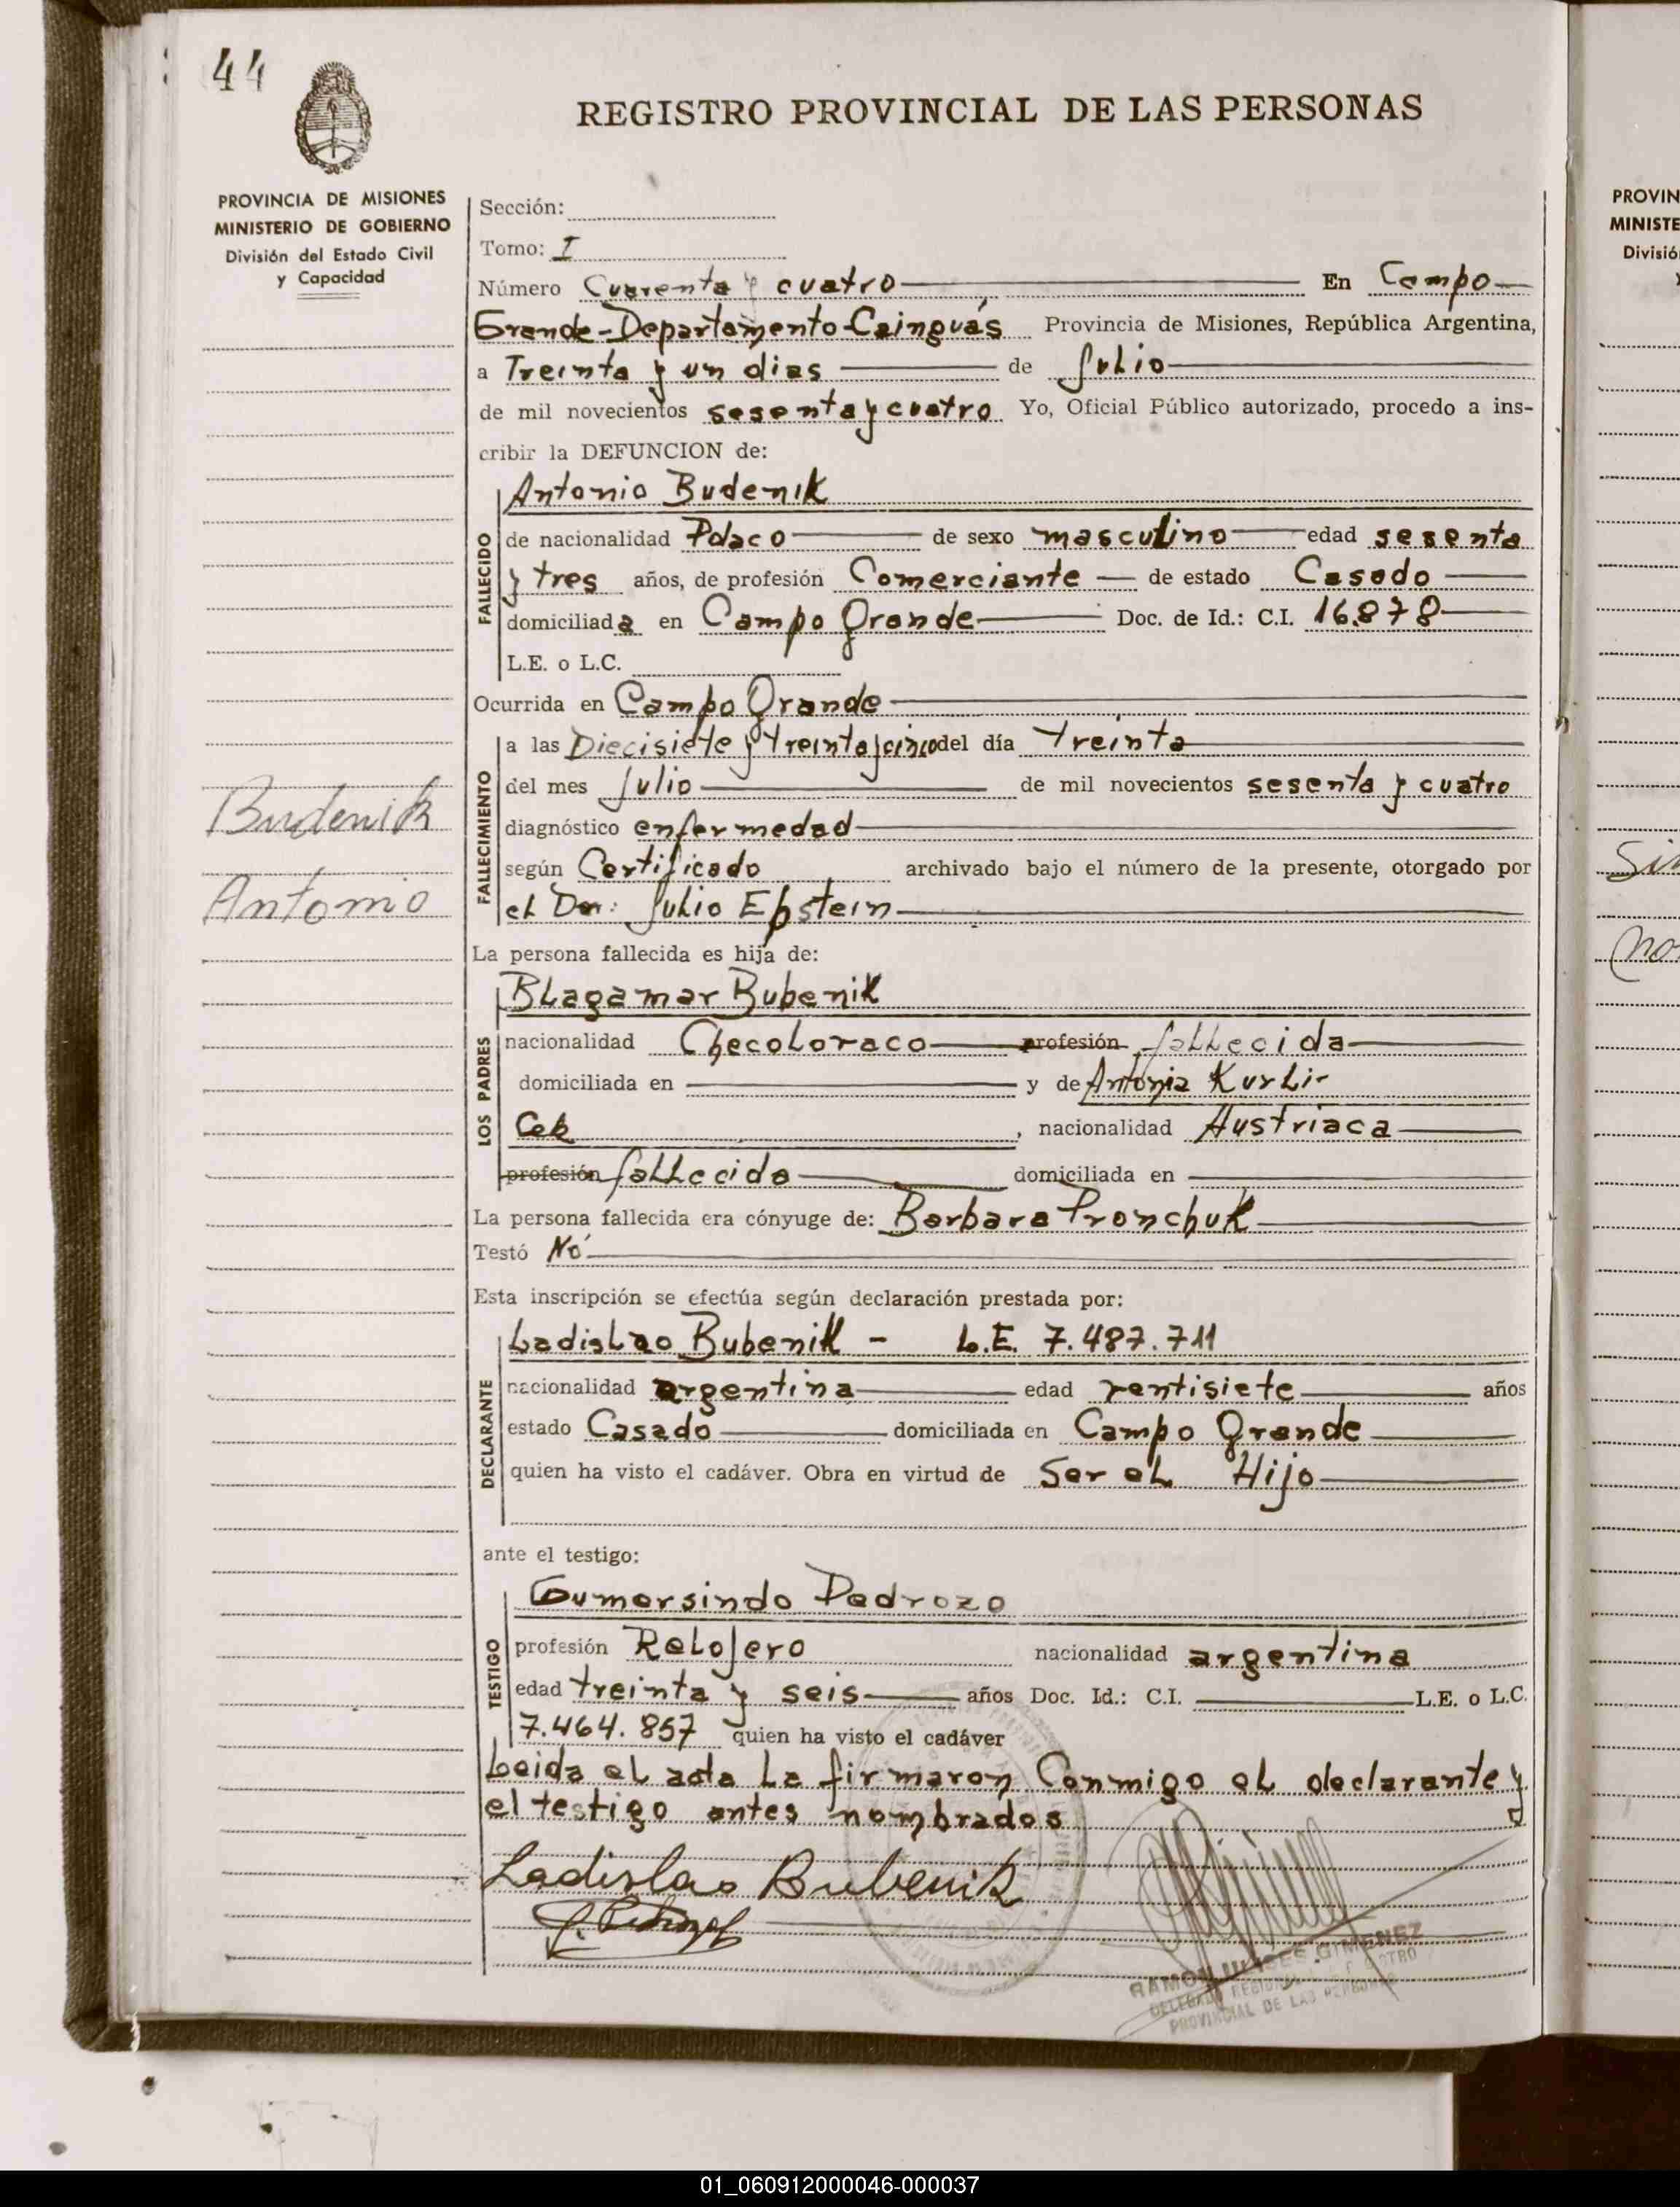 44
REGISTRO PROVINCIAL DE LAS PERSONAS
PROVINCIA DE MISIONES
MINISTERIO DE GOBIERNO
División del Estado Civil
y Capacidad
Sección:
Tomo: I
Número Cuarenta y cuatro En Campo
Grande-Departamento-Cainguás Provincia de Misiones, República Argentina,
a Treinta y un dias de Julio
de mil novecientos sesenta y cuatro Yo, Oficial Público autorizado, procedo a ins-
cribir la DEFUNCION de:
Antonio Budenik
FALLECIDO
de nacionalidad Polaco de sexo masculino edad sesenta
y tres años, de profesión Comerciante de estado Casado
domiciliada en Campo Grande Doc. de Id.: C.I. 16.878
L.E. o L.C.
Ocurrida en Campo Grande
FALLECIMIENTO
a las Diecisiete y treinta y cinco del día treinta
del mes Julio de mil novecientos sesenta y cuatro
diagnóstico enfermedad
según Certificado archivado bajo el número de la presente, otorgado por
el Dr: Julio Epstein
Budenik
Antonio
La persona fallecida es hija de:
Blagamar Bubenik
LOS PADRES
nacionalidad Checoloraco profesión fallecida
domiciliada en y de Antonia Kurli-
Cek, nacionalidad Austriaca
profesión fallecida domiciliada en
La persona fallecida era cónyuge de: Barbara Pronchuk
Testó No
Esta inscripción se efectúa según declaración prestada por:
Ladislao Bubenik - L.E. 7.487.711
DECLARANTE
nacionalidad argentina edad ventisiete años
estado Casado domiciliada en Campo Grande
quien ha visto el cadáver. Obra en virtud de Ser el Hijo
ante el testigo:
Gumersindo Pedrozo
TESTIGO
profesión Relojero nacionalidad argentina
edad treinta y seis años Doc. Id.: C.I. L.E. o L.C.
7.464.857 quien ha visto el cadáver
Leida el acta la firmaron Conmigo el declarante y
el testigo antes nombrados
Ladislao Bubenik
RAMON ULISES GIMENEZ
PROVINCIAL DE LAS PERSONAS
PROVIN
MINISTE
Divisió
01_060912000046-000037